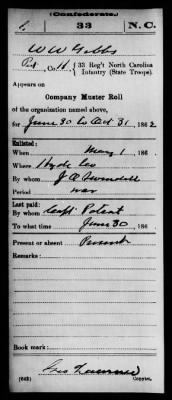 (Confederate.)
33 N.C.
W W Gibbs
Pvt, Co. H, 33 Reg't North Carolina
Infantry (State Troops).
Appears on
Company Muster Roll
of the organization named above,
for June 30 to Oct 31, 1862
Enlisted:
When May 1, 186
Where Hyde Co
By whom J A
Period war
Last paid:
By whom Capt
To what time June 30, 186
Present or absent Present
Remarks:
Book mark:
(642) Copyist.